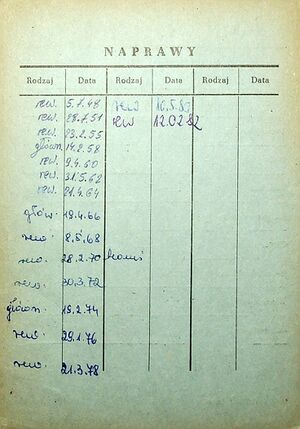 NAPRAWY
Rodzaj Data Rodzaj Data Rodzaj Data
rew. 5.7.48 rew 16.5.80
rew. 28.7.51 rew 12.02.82
rew. 23.2.55
główn. 14.2.58
rew. 9.4.60
rew. 31.5.62
rew. 21.4.64
głów. 19.4.66
rew. 8.5.68
rew. 28.2.70
rew. 30.3.72
główn. 19.2.74
rew. 29.1.76
rew. 21.3.78